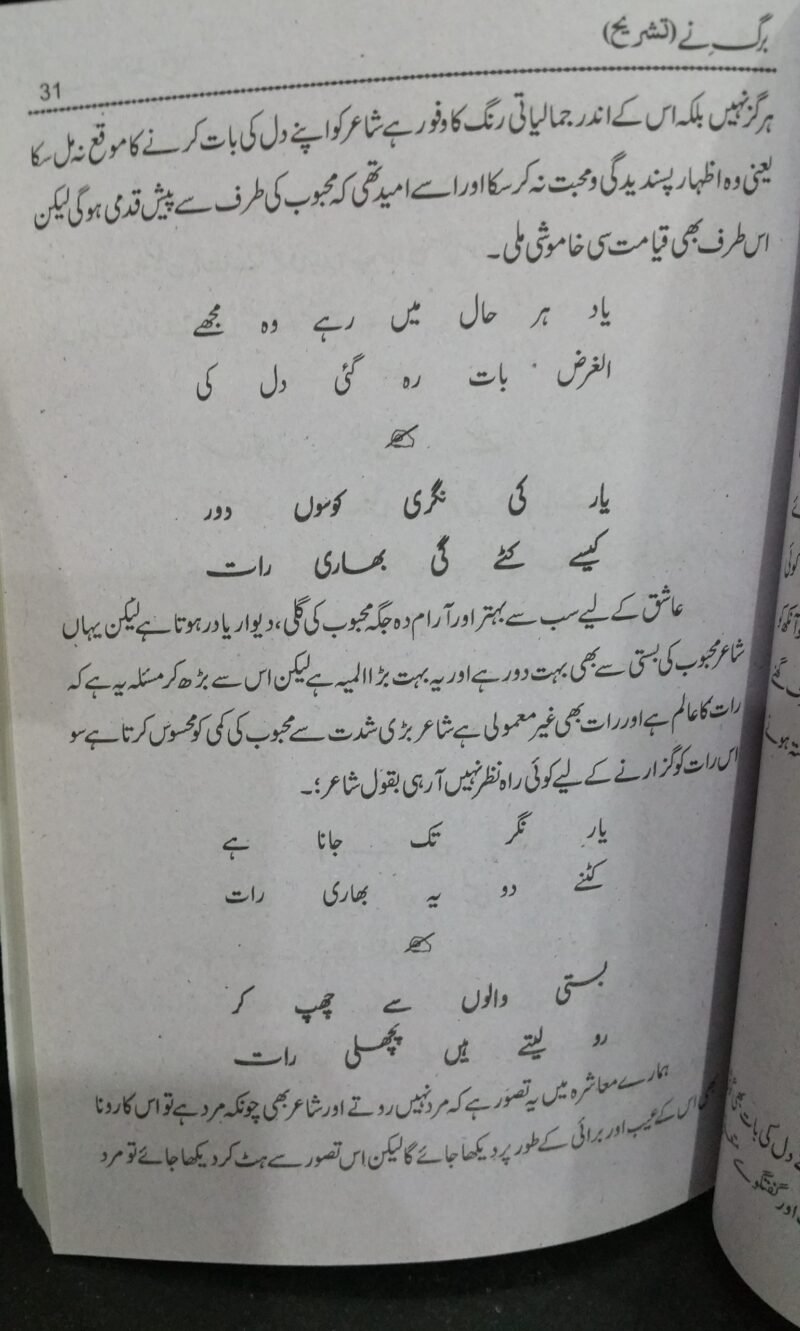 برگِ نے (تشریح)
31
ہرگز نہیں بلکہ اس کے اندر جمالیاتی رنگ کا وفور ہے شاعر کو اپنے دل کی بات کرنے کا موقع نہ مل سکا
یعنی وہ اظہار پسندیدگی و محبت نہ کر سکا اور اسے امید تھی کہ محبوب کی طرف سے پیش قدمی ہوگی لیکن
اس طرف بھی قیامت سی خاموشی ملی۔
یاد ہر حال میں رہے وہ مجھے
الغرض بات رہ گئی دل کی
یار کی نگری کوسوں دور
کیسے کٹے گی بھاری رات
عاشق کے لیے سب سے بہتر اور آرام دہ جگہ محبوب کی گلی، دیوار یا در ہوتا ہے لیکن یہاں
شاعر محبوب کی بستی سے بھی بہت دور ہے اور یہ بہت بڑا المیہ ہے لیکن اس سے بڑھ کر مسئلہ یہ ہے کہ
رات کا عالم ہے اور رات بھی غیر معمولی ہے شاعر بڑی شدت سے محبوب کی کمی کو محسوس کرتا ہے سو
اس رات کو گزارنے کے لیے کوئی راہ نظر نہیں آ رہی بقول شاعر؛۔
یار نگر تک جانا ہے
کٹنے دو یہ بھاری رات
بستی والوں سے چھپ کر
رو لیتے ہیں پچھلی رات
ہمارے معاشرہ میں یہ تصور ہے کہ مرد نہیں روتے اور شاعر بھی چونکہ مرد ہے تو اس کا رونا
بھی اس کے عیب اور برائی کے طور پر دیکھا جائے گا لیکن اس تصور سے ہٹ کر دیکھا جائے تو مرد
کوئی
دل کی بات
اور گفتگو